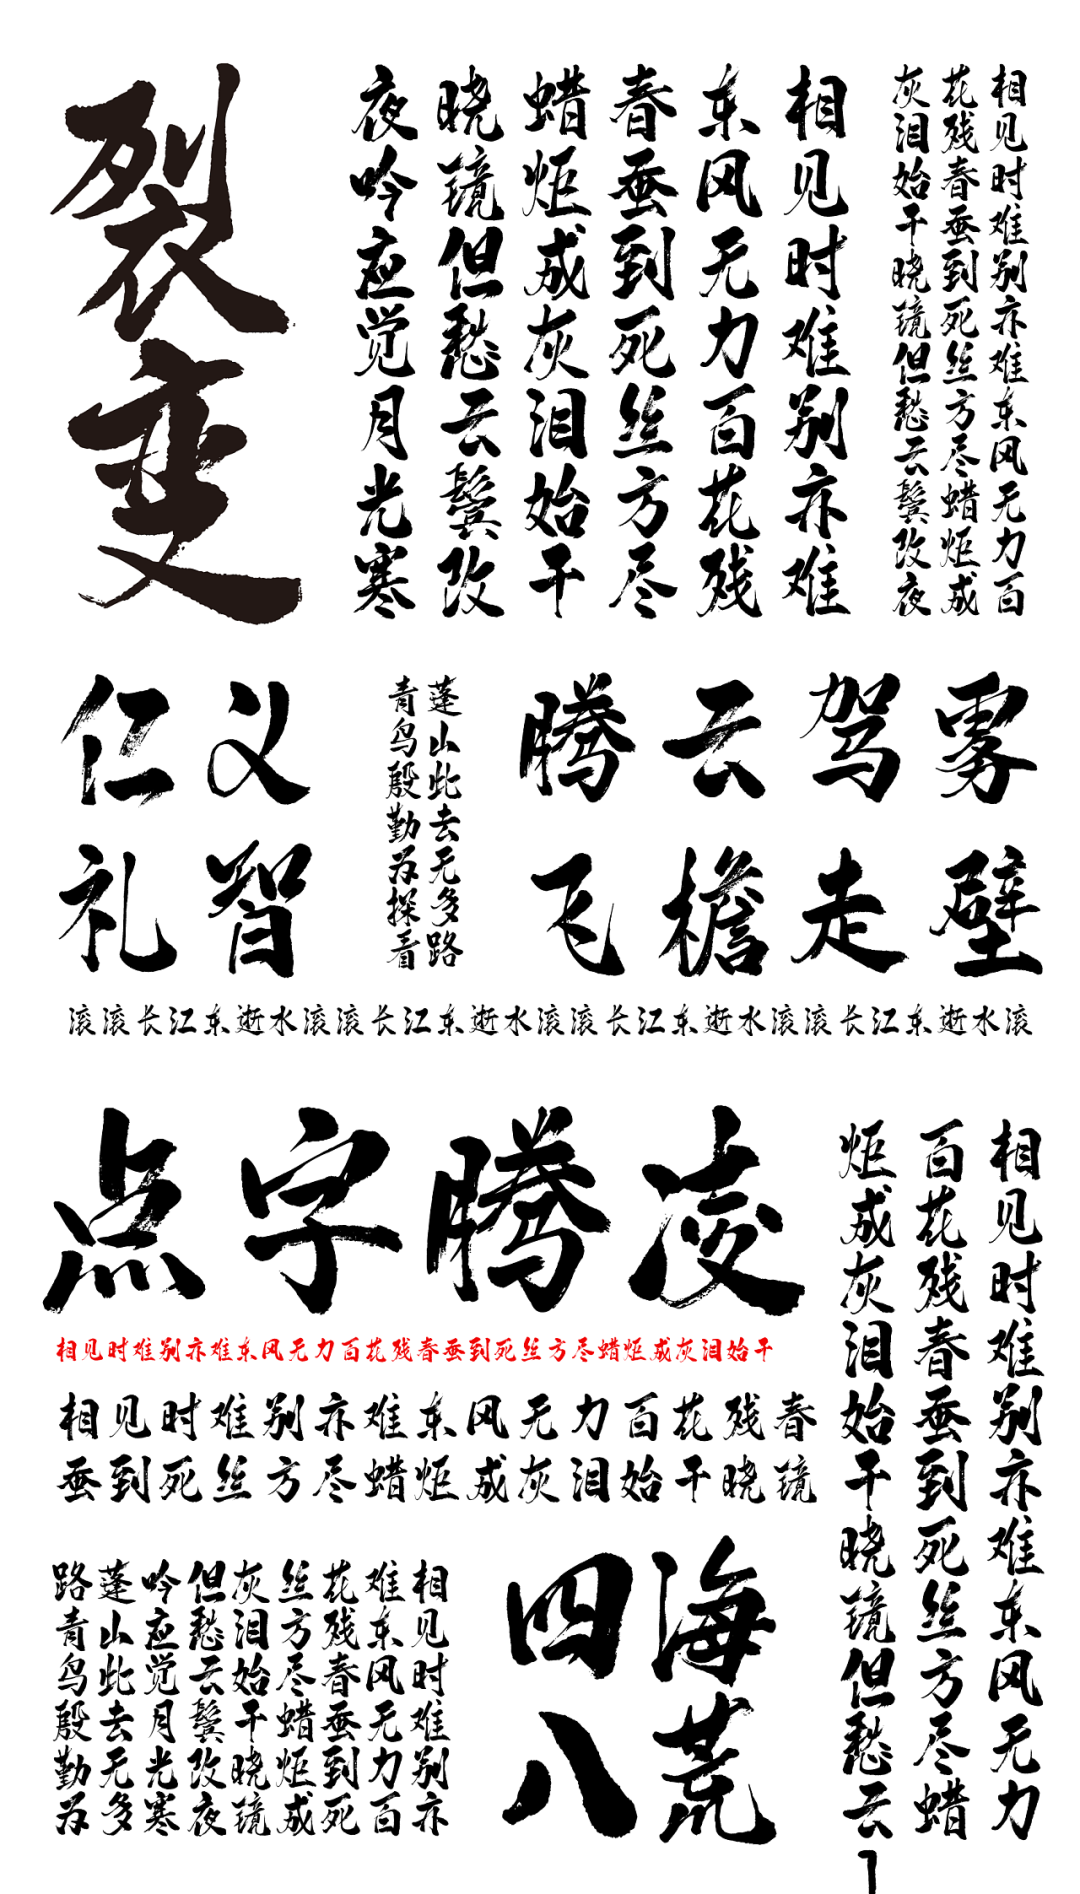 裂变
相见时难别亦难
东风无力百花残
春蚕到死丝方尽
蜡炬成灰泪始干
晓镜但愁云鬓改
夜吟应觉月光寒
相见时难别亦难东风无力百
花残春蚕到死丝方尽蜡炬成
灰泪始干晓镜但愁云鬓改夜
仁义
礼智
蓬山此去无多路
青鸟殷勤为探看
腾云驾雾
飞檐走壁
滚滚长江东逝水滚滚长江东逝水滚滚长江东逝水滚滚长江东逝水滚
点字腾凌
相见时难别亦难东风无力百花残春蚕到死丝方尽蜡炬成灰泪始干
相见时难别亦难东风无力百花残春
蚕到死丝方尽蜡炬成灰泪始干晓镜
相见时难别亦难东风无力
百花残春蚕到死丝方尽蜡
炬成灰泪始干晓镜但愁云
相见时难别亦
难东风无力百
花残春蚕到死
丝方尽蜡炬成
灰泪始干晓镜
但愁云鬓改夜
吟应觉月光寒
蓬山此去无多
路青鸟殷勤为
四海
八荒